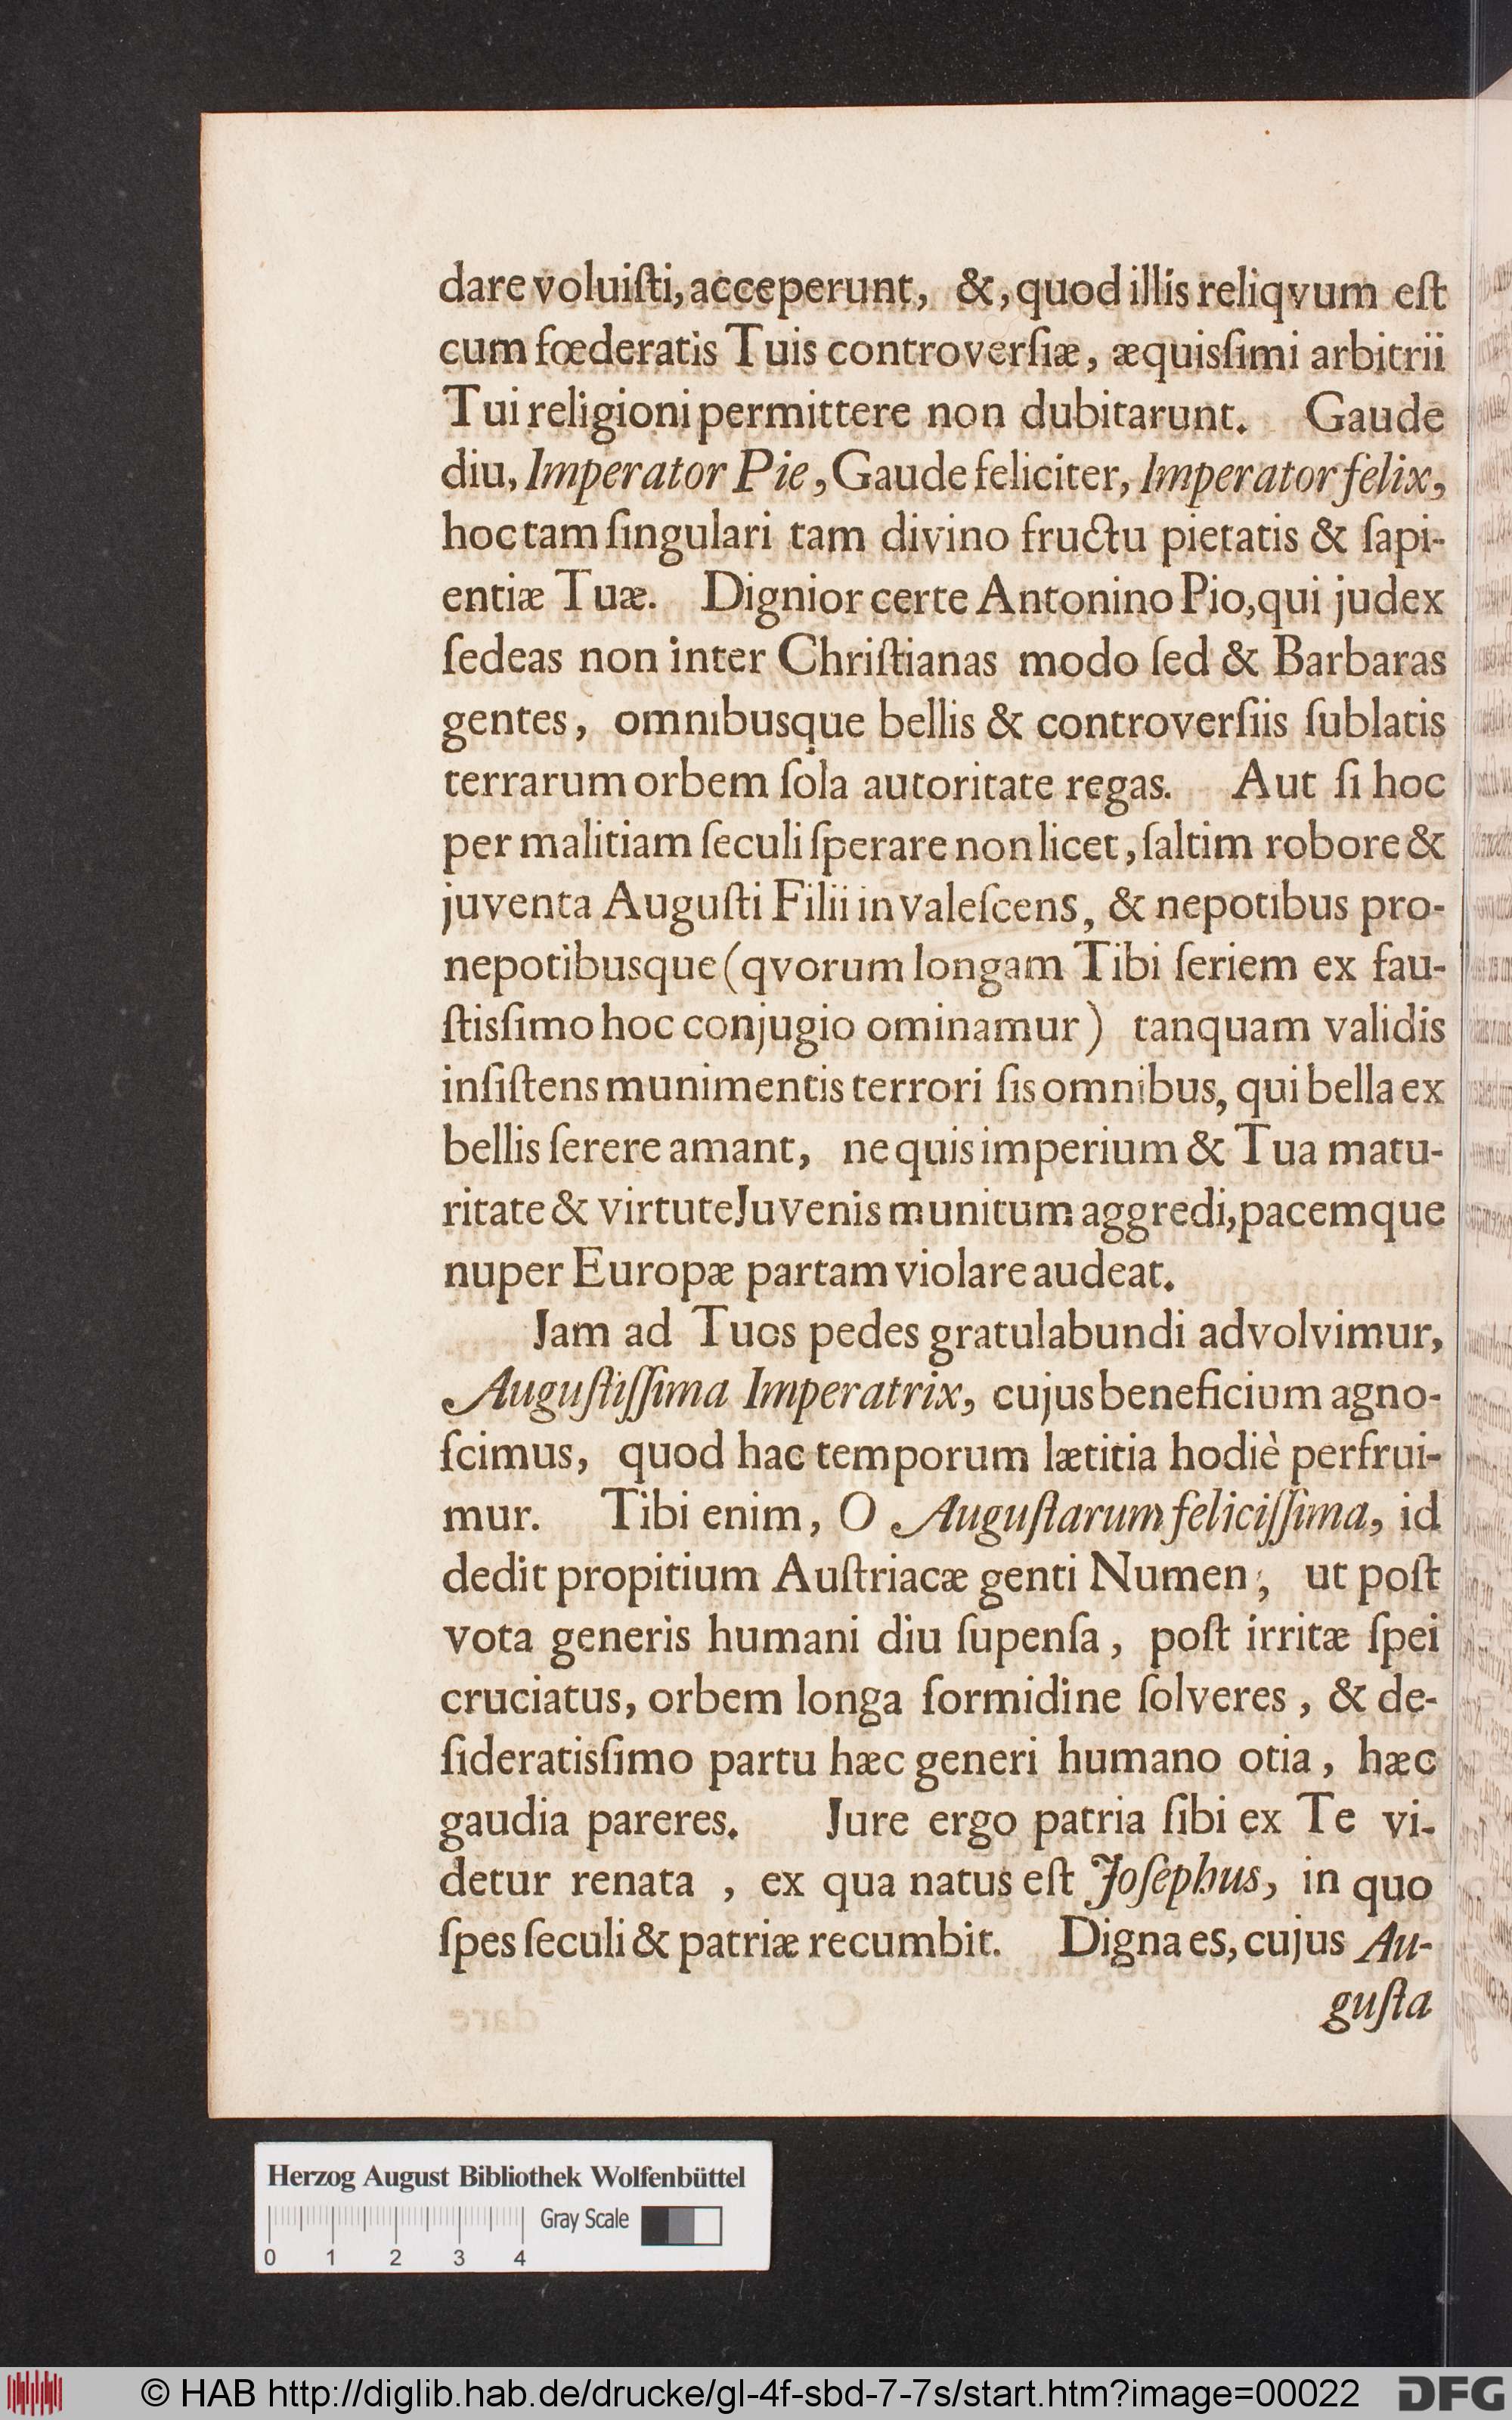 dare voluiſti, acceperunt, &, quod illis reliqvum eſt
cum fœderatis Tuis controverſiæ, æquisſimi arbitrii
Tui religioni permittere non dubitarunt. Gaude
diu, Imperator Pie, Gaude feliciter, Imperator felix,
hoc tam ſingulari tam divino fructu pietatis & ſapi-
entiæ Tuæ. Dignior certe Antonino Pio, qui judex
ſedeas non inter Chriſtianas modo ſed & Barbaras
gentes, omnibusque bellis & controverſiis ſublatis
terrarum orbem ſola autoritate regas. Aut ſi hoc
per malitiam ſeculi ſperare non licet, ſaltim robore &
juventa Auguſti Filii invaleſcens, & nepotibus pro-
nepotibusque (qvorum longam Tibi ſeriem ex fau-
ſtisſimo hoc conjugio ominamur) tanquam validis
inſiſtens munimentis terrori ſis omnibus, qui bella ex
bellis ſerere amant, ne quis imperium & Tua matu-
ritate & virtute Juvenis munitum aggredi, pacemque
nuper Europæ partam violare audeat.
Jam ad Tuos pedes gratulabundi advolvimur,
Auguſtiſſima Imperatrix, cujus beneficium agno-
ſcimus, quod hac temporum lætitia hodiè perfrui-
mur. Tibi enim, O Auguſtarum feliciſſima, id
dedit propitium Auſtriacæ genti Numen, ut poſt
vota generis humani diu ſupenſa, poſt irritæ ſpei
cruciatus, orbem longa formidine ſolveres, & de-
ſideratisſimo partu hæc generi humano otia, hæc
gaudia pareres. Jure ergo patria ſibi ex Te vi-
detur renata , ex qua natus eſt Joſephus, in quo
ſpes ſeculi & patriæ recumbit. Digna es, cujus Au-
guſta
Herzog August Bibliothek Wolfenbüttel
Gray Scale
0 1 2 3 4
© HAB http://diglib.hab.de/drucke/gl-4f-sbd-7-7s/start.htm?image=00022
DFG